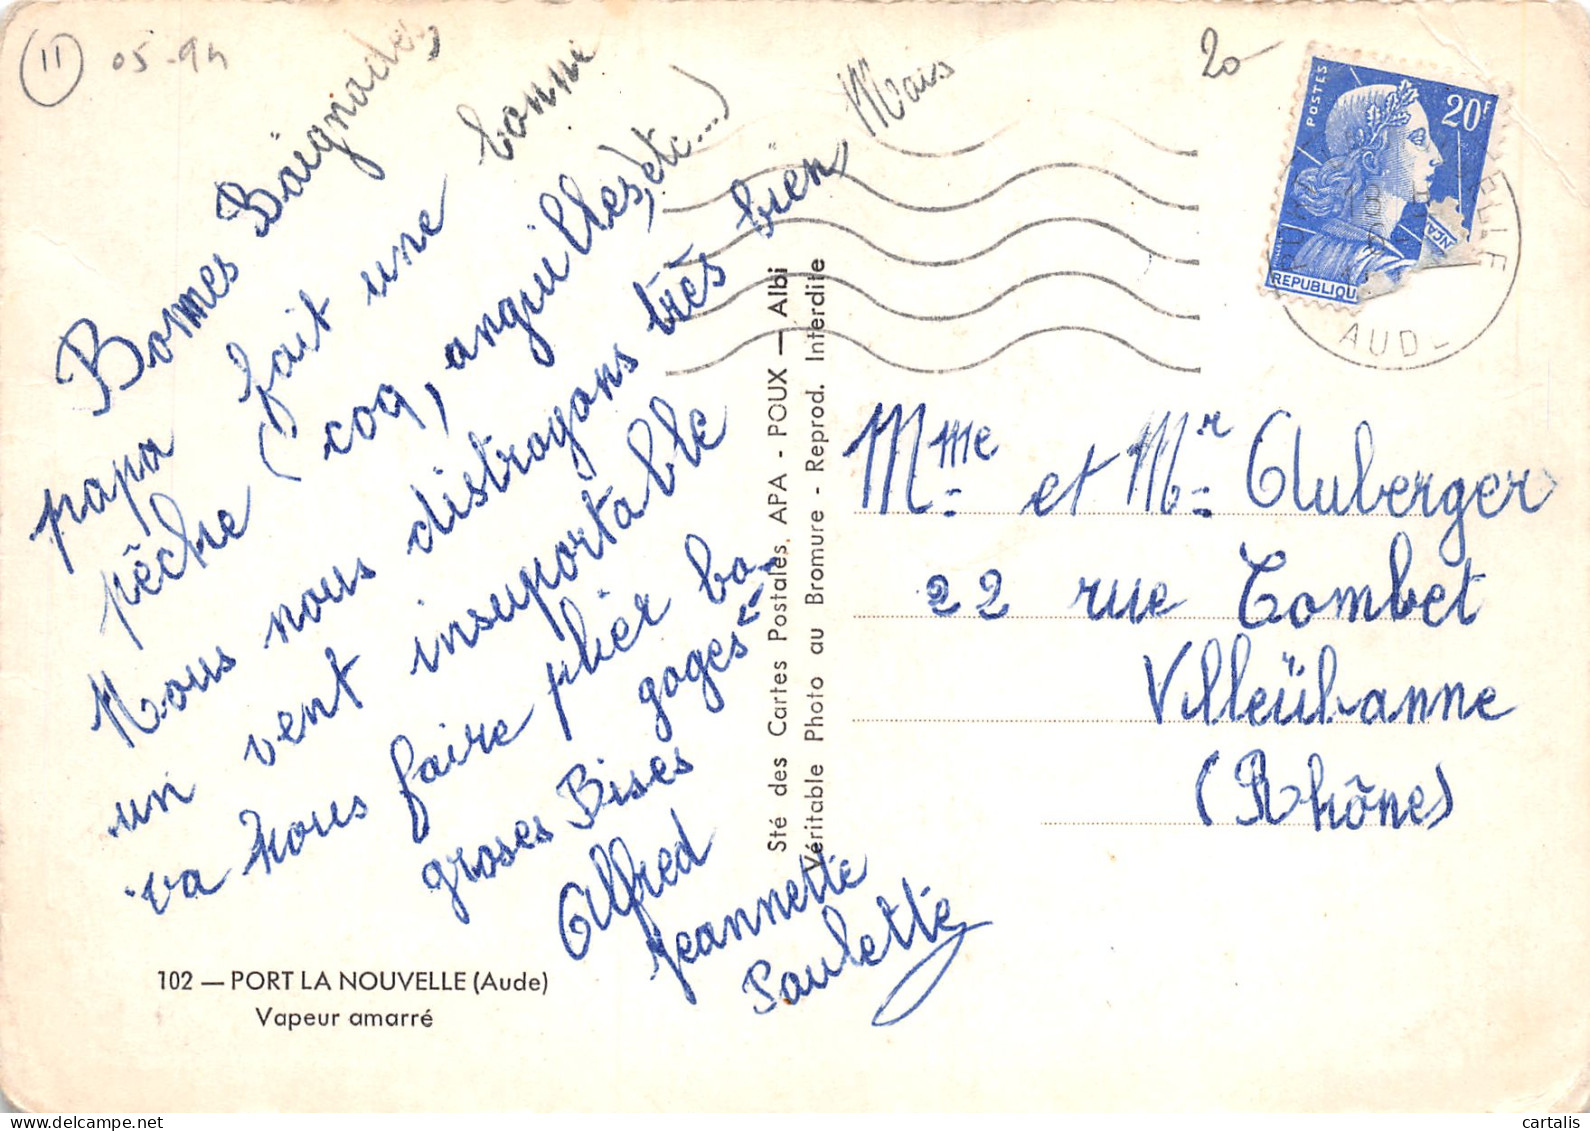 11
05-94
20-
Bonnes Baignades,
papa fait une bonne
pêche (coq, anguilles, etc....)
Nous nous distrayons très bien, Mais
un vent insuportable
va nous faire plier ba-
gages
groses Bises
Alfred
Jeannette
Paulette
102 — PORT LA NOUVELLE (Aude)
Vapeur amarré
Sté des Cartes Postales, APA - POUX — Albi
Véritable Photo au Bromure - Reprod. Interdite
POSTES
20F
REPUBLIQU
18
AUDE
Mme et Mr Auberger
22 rue Combet
Villeürbanne
(Rhône)
cartalis.com